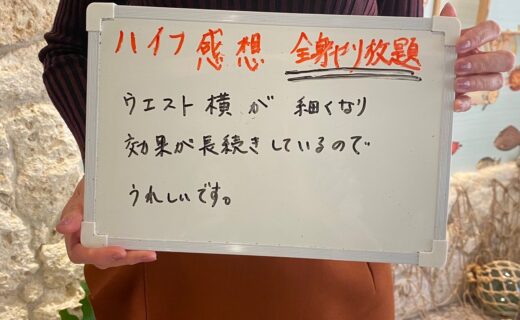 ハイフ感想 全身やり放題
ウエスト横が 細くなり
効果が長続きしているので
うれしいです。